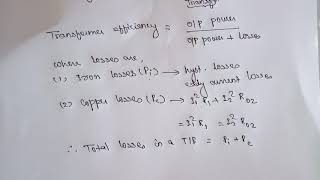 Transfor
Transformer efficiency = o/p power
o/p power + losses
where losses are,
(1) Iron losses (Pi) → hyst. losses
eddy current losses
(2) Copper losses (Pc) → I₁²R₁ + I₂²R₀₂
= I₁²R₁ = I₂²R₀₂
∴ Total losses in a T/F = Pi + Pc